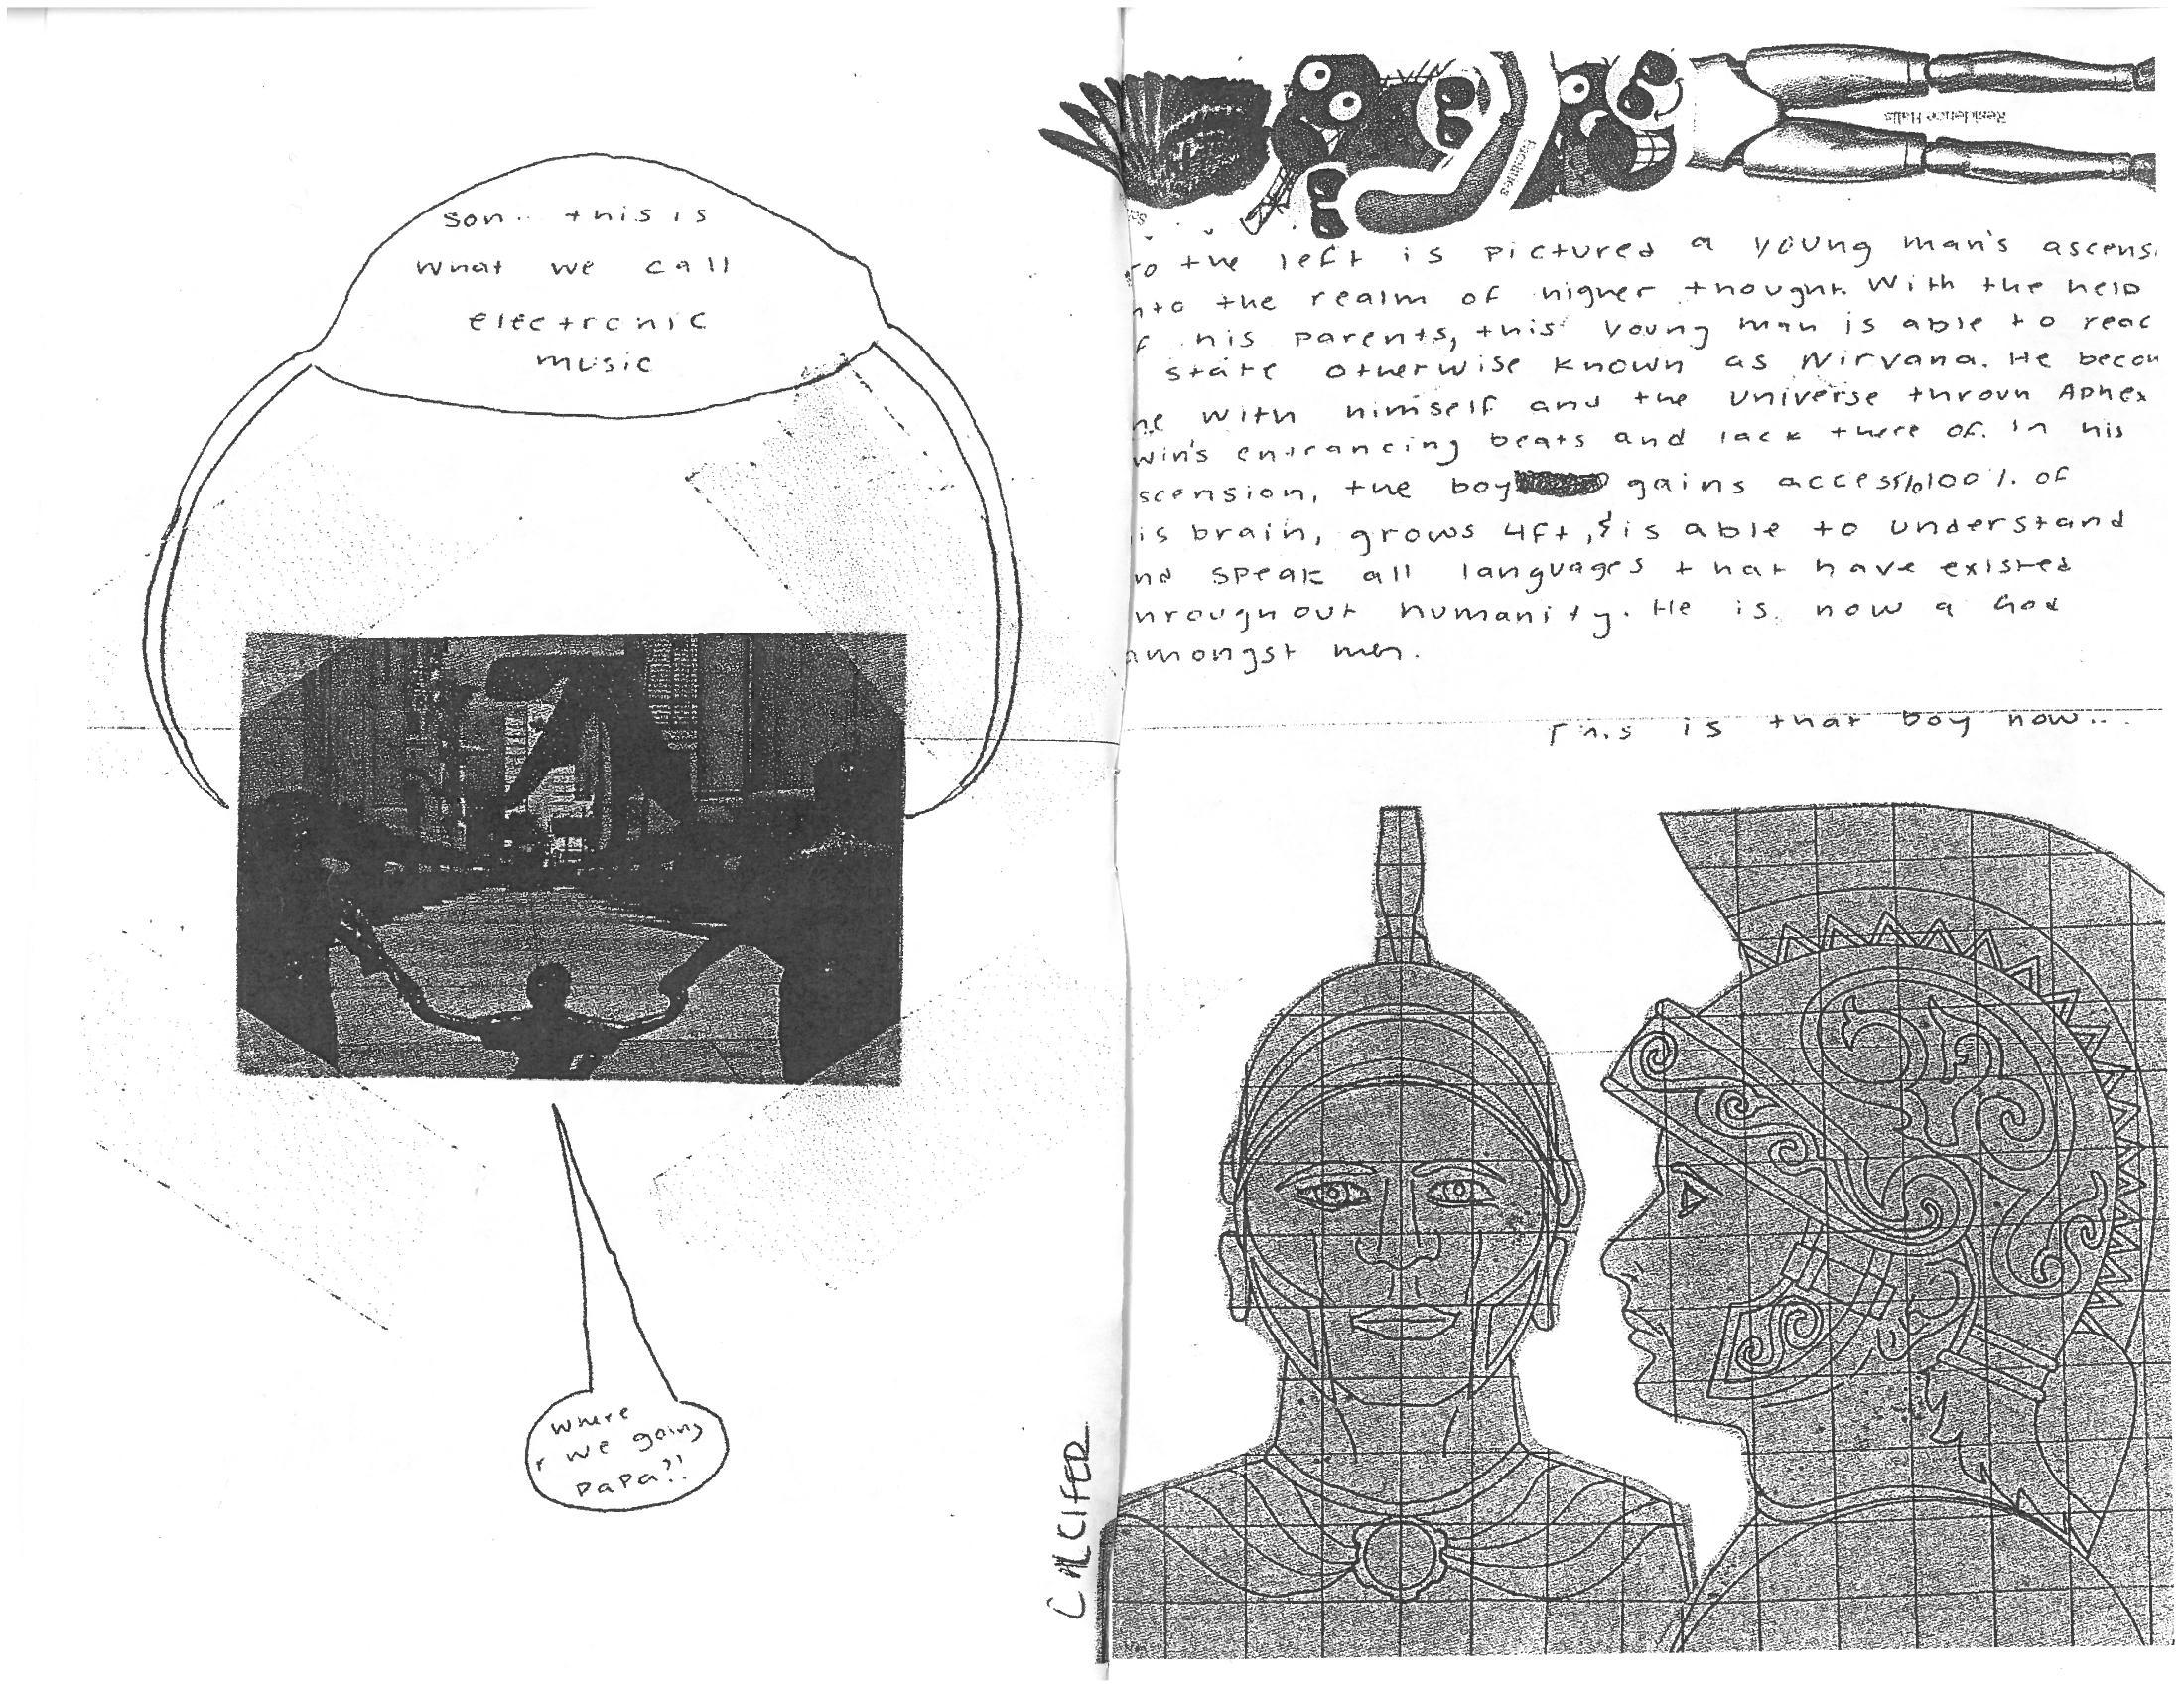 Son.. this is
what we call
electronic
music
where
r we going
papa?!
CALCIFER
Residence Halls
to the left is pictured a young man's ascens
nto the realm of higher thought. With the help
f his parents, this young man is able to reac
state otherwise known as Nirvana. He becom
ne with himself and the universe throun Aphex
win's entrancing beats and lack there of. In his
scension, the boy gains access to 100% of
is brain, grows 4ft, & is able to understand
nd speak all languages that have existed
hroughout humanity. He is now a God
amongst men.
This is that boy now...